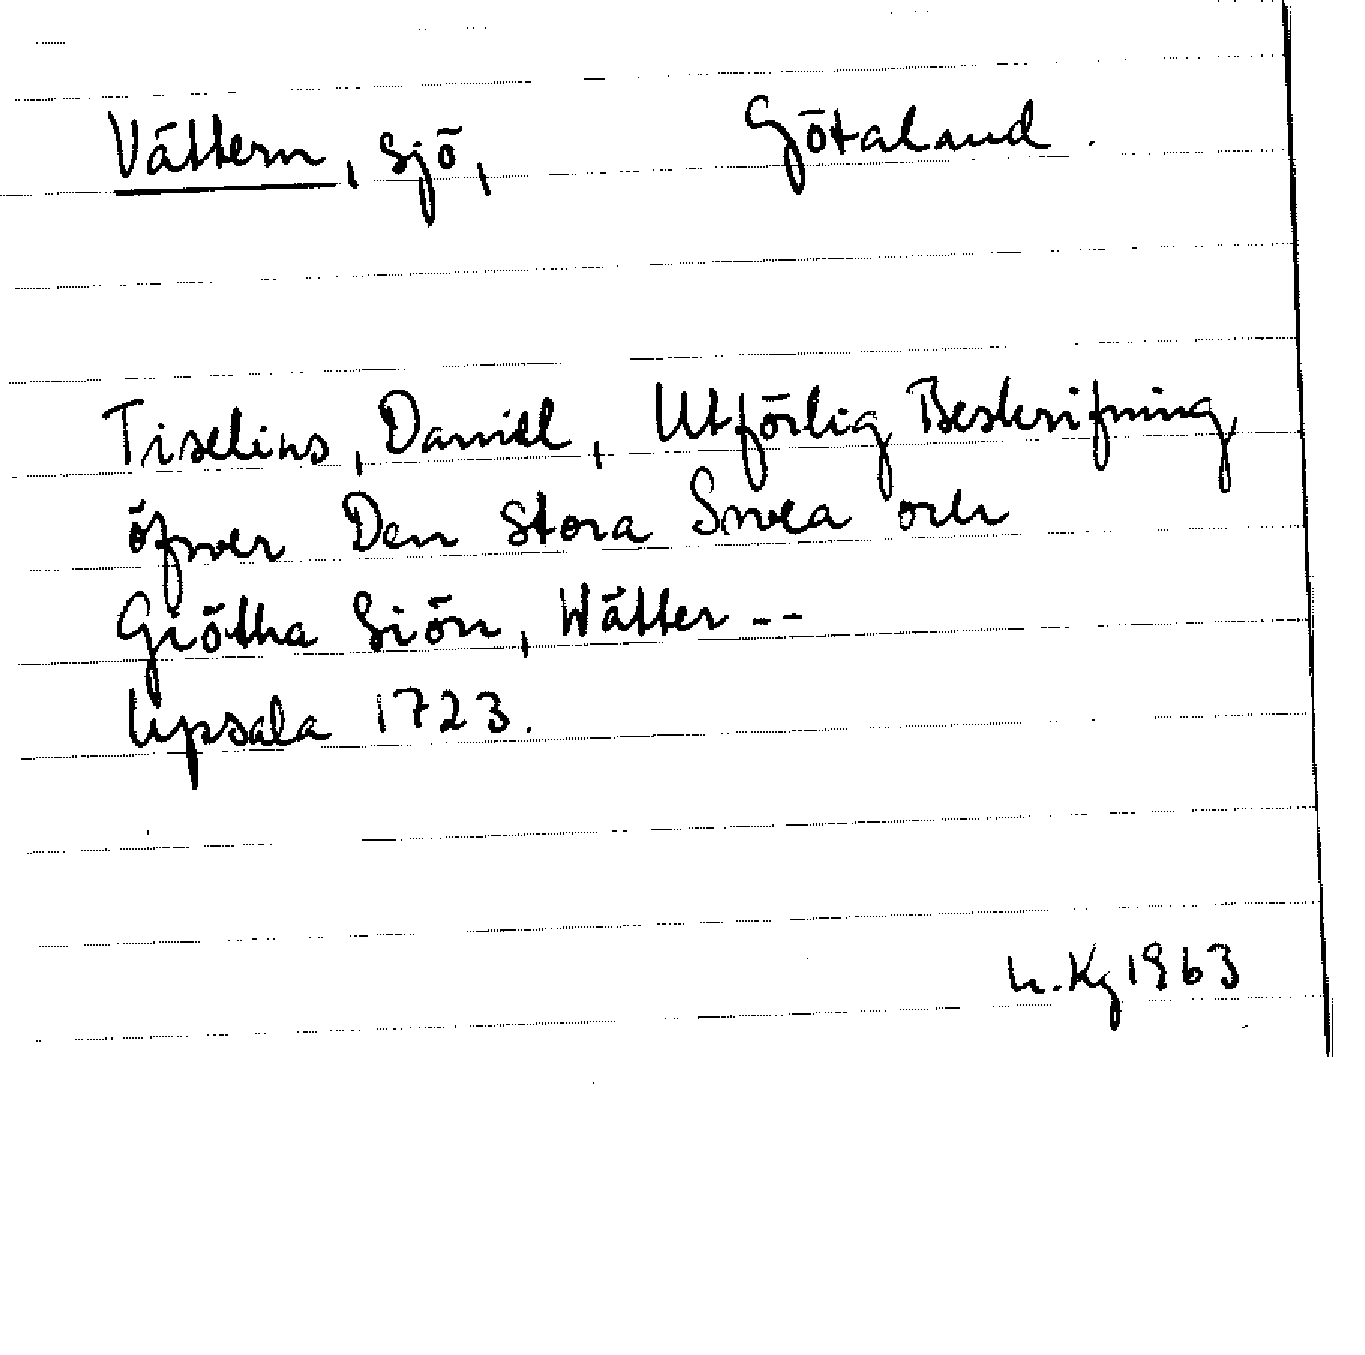 Vättern, sjö, Götaland.
Tiselius, Daniel, Utförlig Beskrifning
öfwer Den Stora Swea och
Giötha Siön, Wätter --
Upsala 1723.
h. Kg 1963